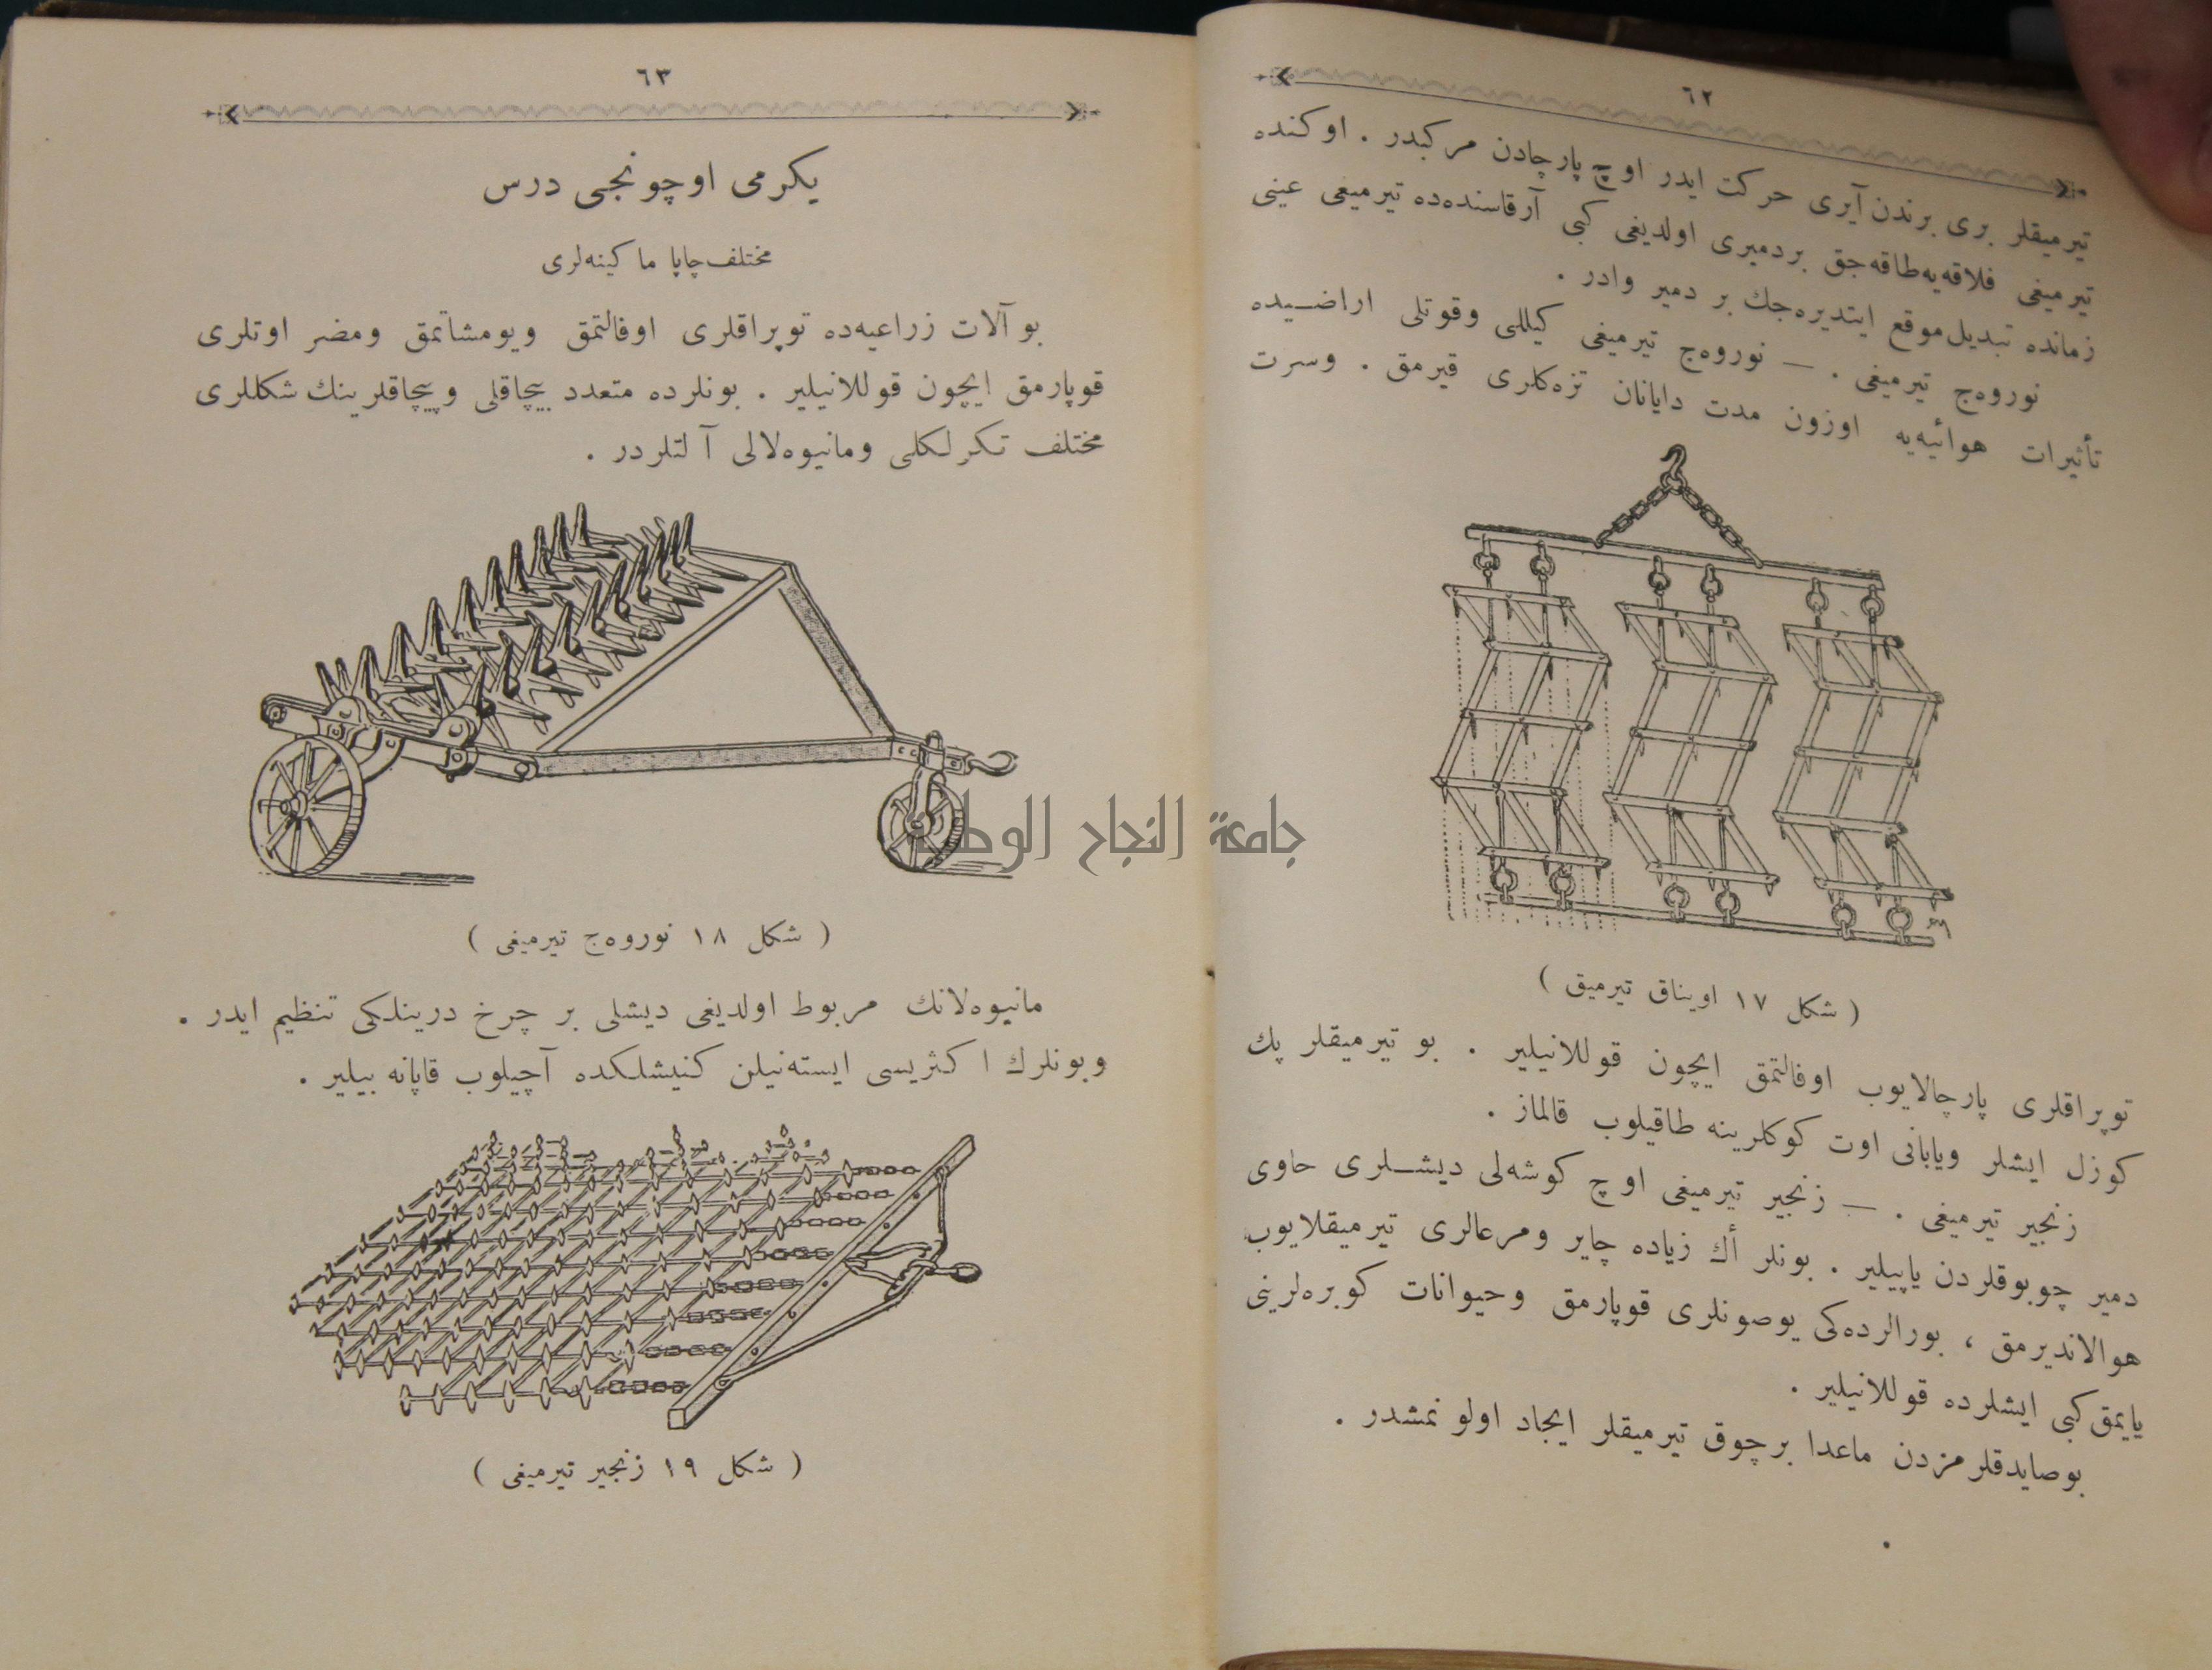 ٦٢
تيرميقلر بری برندن آيری حركت ايدر اوچ پارچادن مركبدر . اوكنده
تيرميغی فلاقه‌يه طاقه‌جق بردميری اولديغی كبی آرقاسنده‌ده تيرميغی عينی
زمانده تبديل موقع ايتديره‌جك بر دمير واردر .
نوروه‌ج تيرميغی . — نوروه‌ج تيرميغی كيللی وقوتلی اراضيده
تأثيرات هوائيه‌يه اوزون مدت دايانان تزه‌كلری قيرمق . وسرت
( شكل ١٧ اويناق تيرميق )
توپراقلری پارچالايوب اوفالتمق ايچون قوللانيلير . بو تيرميقلر پك
كوزل ايشلر ويابانی اوت كوكلرينه طاقيلوب قالماز .
زنجير تيرميغی . — زنجير تيرميغی اوچ كوشه‌لی ديشلری حاوی
دمير چوبوقلردن ياپيلير . بونلر أك زياده چاير ومرعالری تيرميقلايوب
هوالانديرمق ، بورالرده‌كی يوصونلری قوپارمق وحيوانات كوبره‌لرينی
يايمق كبی ايشلرده قوللانيلير .
بوصايدقلرمزدن ماعدا برچوق تيرميقلر ايجاد اولونمشدر .
٦٣
يكرمی اوچونجی درس
مختلف چاپا ماكينه‌لری
بو آلات زراعيه‌ده توپراقلری اوفالتمق ويومشاتمق ومضر اوتلری
قوپارمق ايچون قوللانيلير . بونلرده متعدد بيچاقلی وبيچاقلرينك شكللری
مختلف تكرلكلی ومانيوه‌لالی آلتلردر .
( شكل ١٨ نوروه‌ج تيرميغی )
مانيوه‌لانك مربوط اولديغی ديشلی بر چرخ درينلكی تنظيم ايدر .
وبونلرك اكثريسی ايسته‌نيلن كنيشلكده آچيلوب قاپانه بيلير .
( شكل ١٩ زنجير تيرميغی )
جامعة النجاح الوطنية